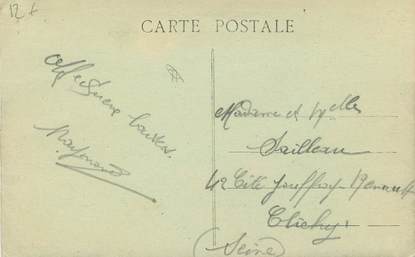 12 €
CARTE POSTALE
Affectueux baisers.
Raymond
Madame et Melle
Sailleau
42 Cité Jouffroy-Renault
Clichy
(Seine)